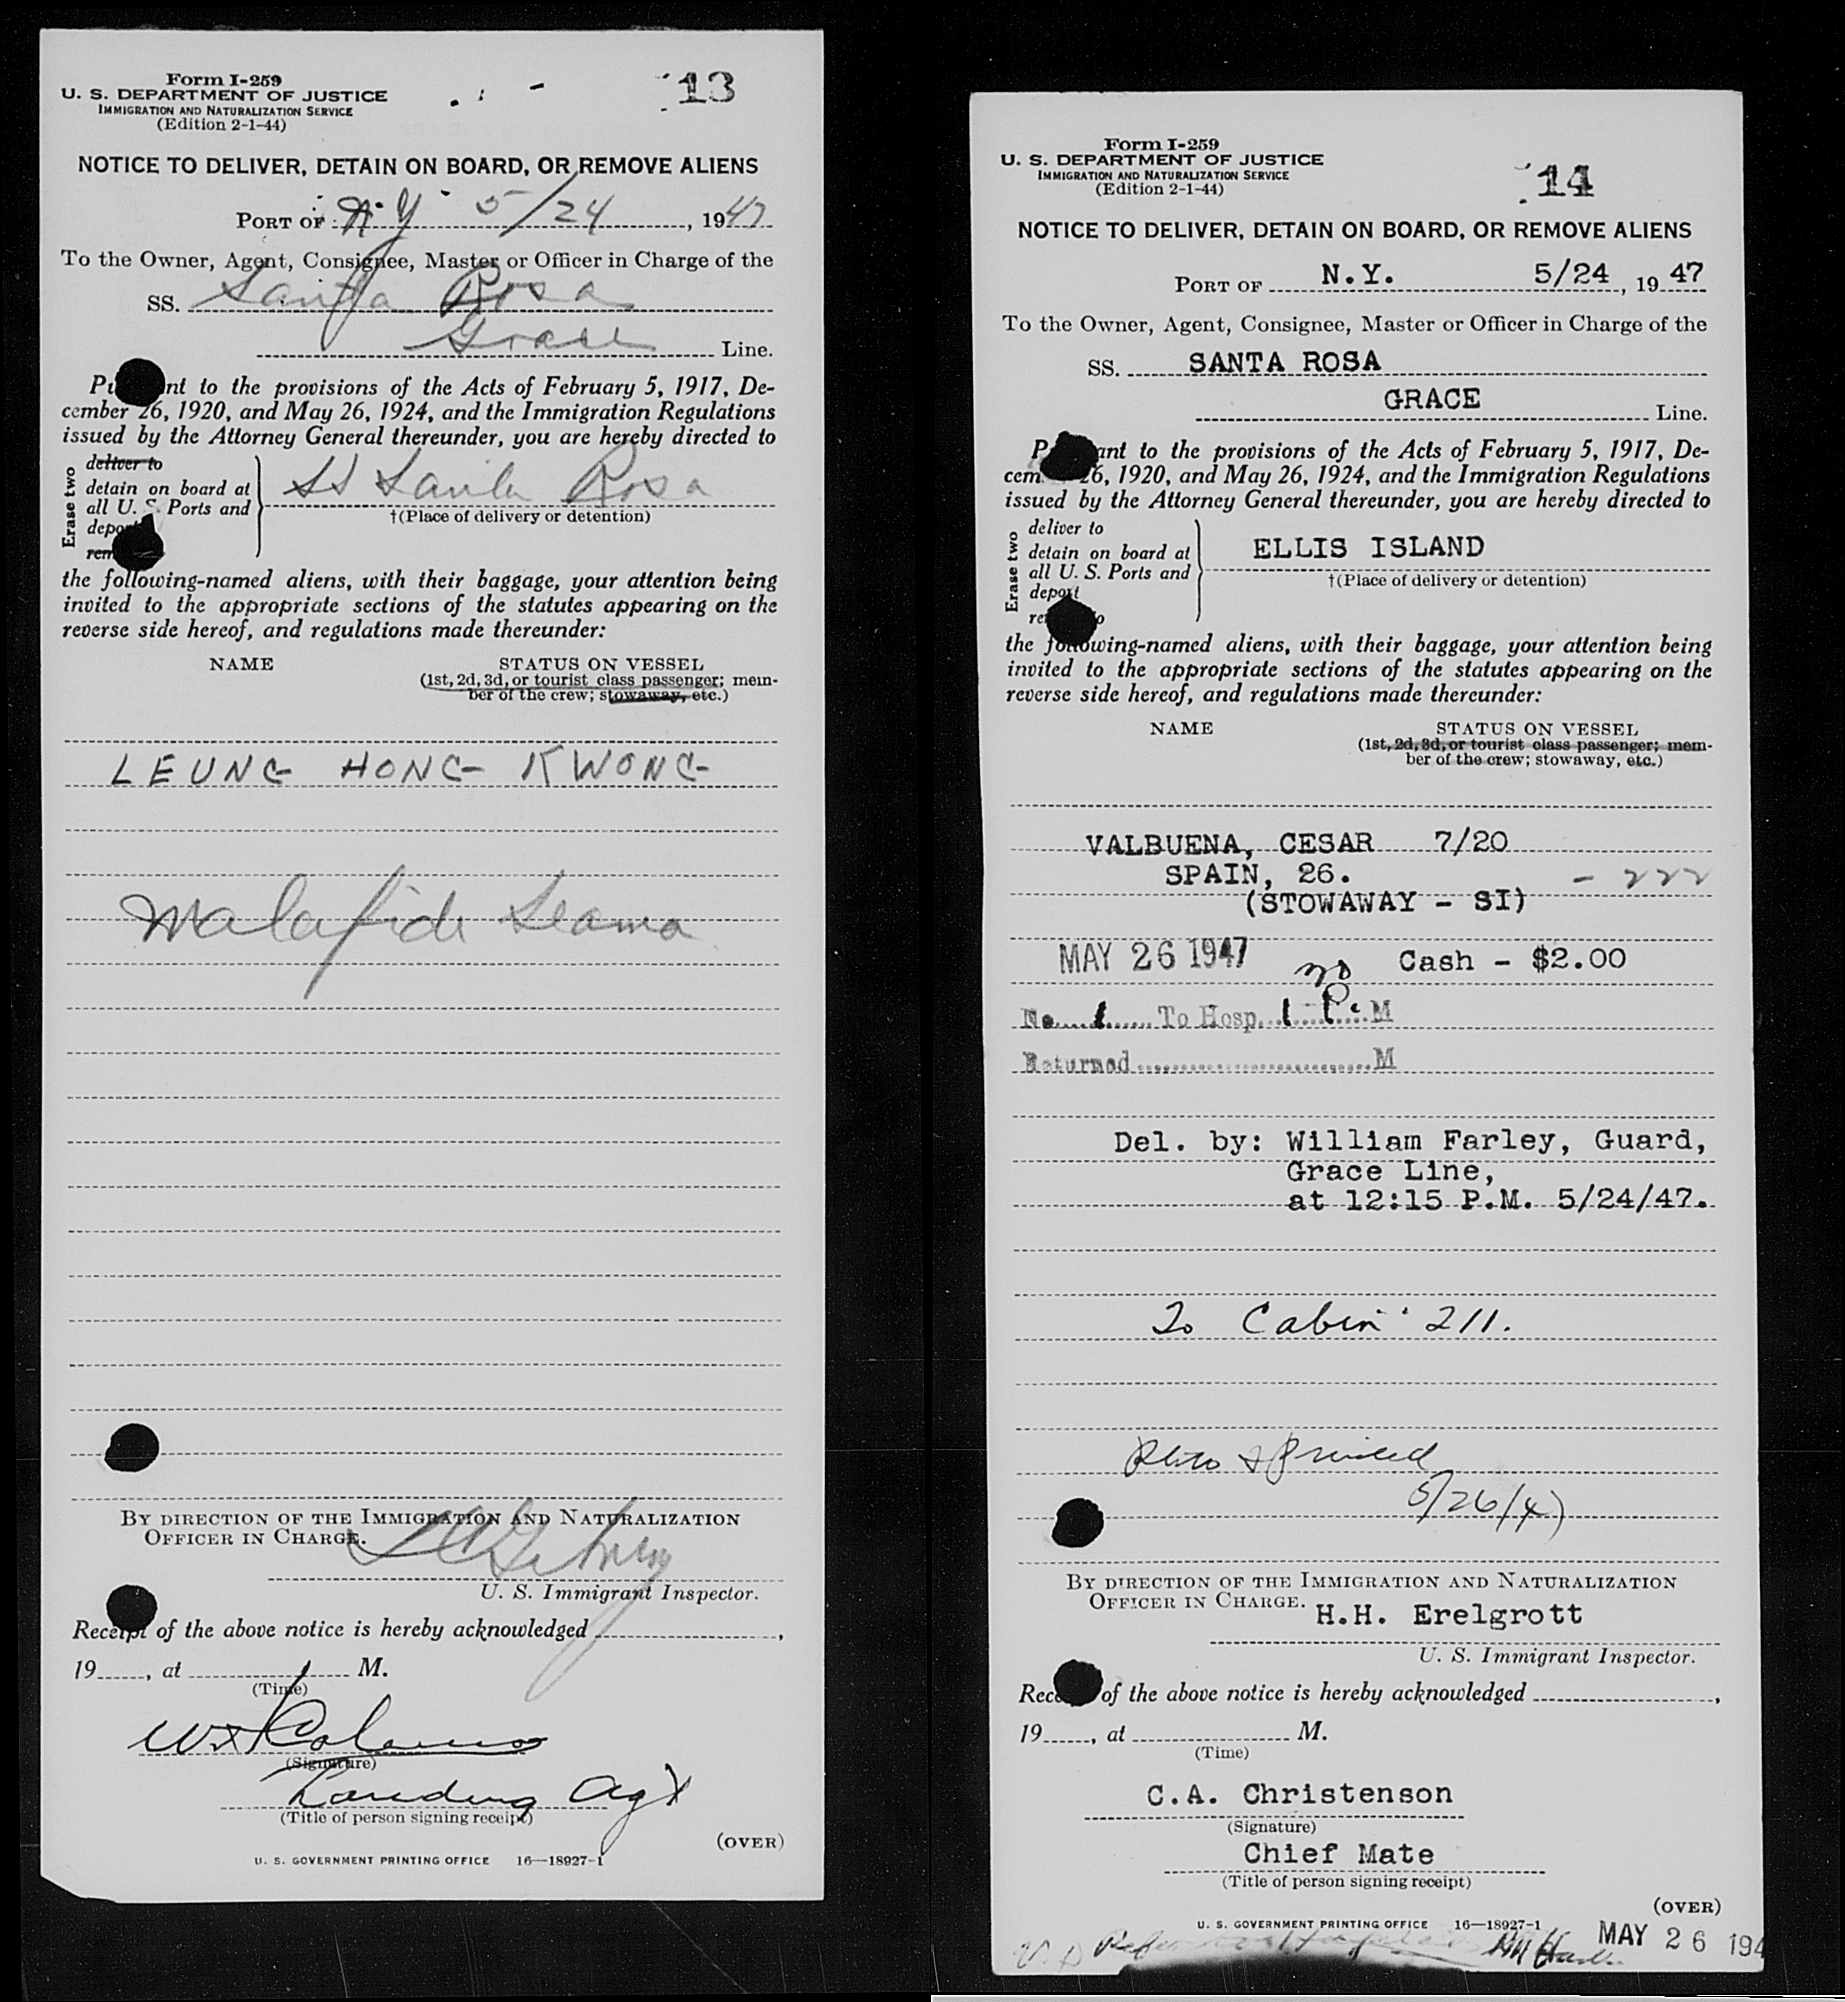 Form I-259
U. S. DEPARTMENT OF JUSTICE
IMMIGRATION AND NATURALIZATION SERVICE
(Edition 2-1-44)
13
NOTICE TO DELIVER, DETAIN ON BOARD, OR REMOVE ALIENS
PORT OF N.Y. 5/24, 1947
To the Owner, Agent, Consignee, Master or Officer in Charge of the
SS. Santa Rosa
Grace Line.
nt to the provisions of the Acts of February 5, 1917, De-
cember 26, 1920, and May 26, 1924, and the Immigration Regulations
issued by the Attorney General thereunder, you are hereby directed to
Erase two
deliver to
detain on board at
all U. S. Ports and
depo
rem
SS Santa Rosa
†(Place of delivery or detention)
the following-named aliens, with their baggage, your attention being
invited to the appropriate sections of the statutes appearing on the
reverse side hereof, and regulations made thereunder:
NAME STATUS ON VESSEL
(1st, 2d, 3d, or tourist class passenger; mem-
ber of the crew; stowaway, etc.)
LEUNG HONG KWONG
Malafide Seama
BY DIRECTION OF THE IMMIGRATION AND NATURALIZATION
OFFICER IN CHARGE.
U. S. Immigrant Inspector.
Receipt of the above notice is hereby acknowledged ,
19 , at M.
(Time)
(Signature)
Landing Agt
(Title of person signing receipt)
(OVER)
U. S. GOVERNMENT PRINTING OFFICE 16—18927-1
Form I-259
U. S. DEPARTMENT OF JUSTICE
IMMIGRATION AND NATURALIZATION SERVICE
(Edition 2-1-44)
14
NOTICE TO DELIVER, DETAIN ON BOARD, OR REMOVE ALIENS
PORT OF N.Y. 5/24, 1947
To the Owner, Agent, Consignee, Master or Officer in Charge of the
SS. SANTA ROSA
GRACE Line.
P ant to the provisions of the Acts of February 5, 1917, De-
cem 26, 1920, and May 26, 1924, and the Immigration Regulations
issued by the Attorney General thereunder, you are hereby directed to
Erase two
deliver to
detain on board at
all U. S. Ports and
deport
re o
ELLIS ISLAND
†(Place of delivery or detention)
the following-named aliens, with their baggage, your attention being
invited to the appropriate sections of the statutes appearing on the
reverse side hereof, and regulations made thereunder:
NAME STATUS ON VESSEL
(1st, 2d, 3d, or tourist class passenger; mem-
ber of the crew; stowaway, etc.)
VALBUENA, CESAR 7/20
SPAIN, 26. - 222
(STOWAWAY - SI)
MAY 26 1947 Cash - $2.00
No. 1 To Hosp. 1 P. M
Returned M
Del. by: William Farley, Guard,
Grace Line,
at 12:15 P.M. 5/24/47.
To Cabin 211.
Photo & Printed
5/26/47
BY DIRECTION OF THE IMMIGRATION AND NATURALIZATION
OFFICER IN CHARGE.
H.H. Erelgrott
U. S. Immigrant Inspector.
Rece of the above notice is hereby acknowledged ,
19 , at M.
(Time)
C.A. Christenson
(Signature)
Chief Mate
(Title of person signing receipt)
(OVER)
U. S. GOVERNMENT PRINTING OFFICE 16—18927-1
MAY 26 194